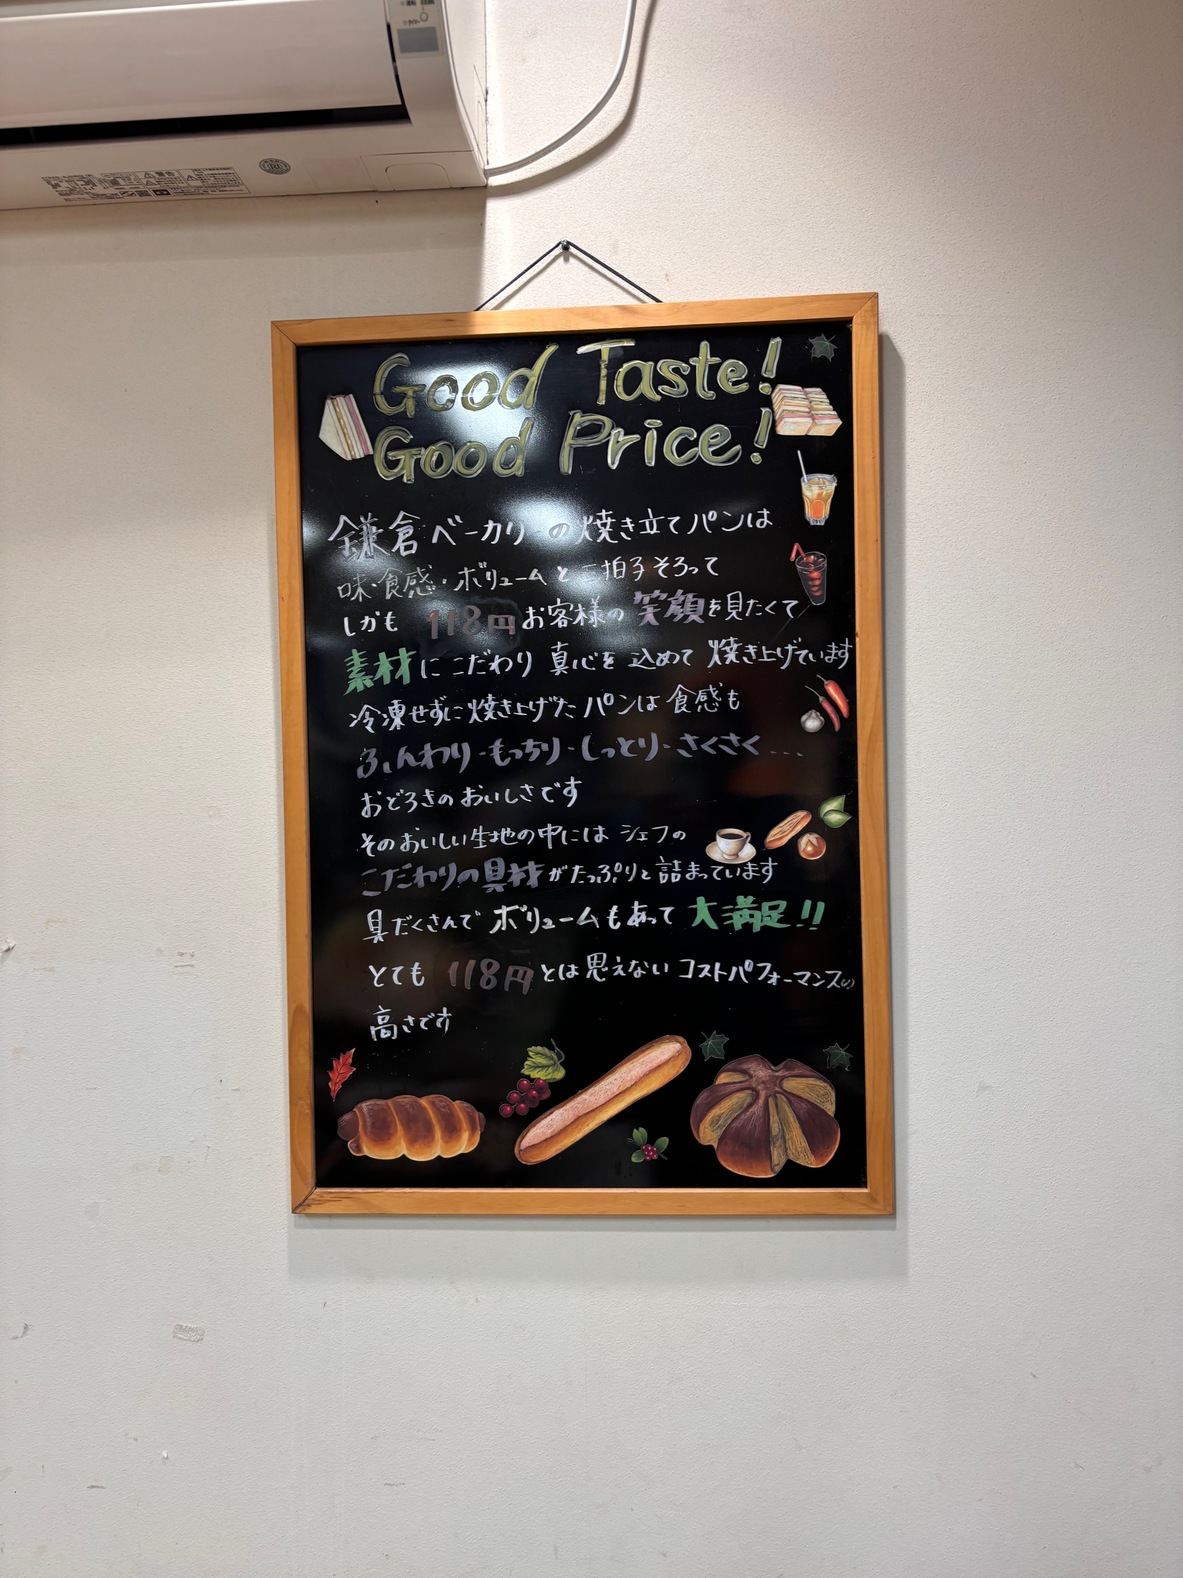 Good Taste!
Good Price!
鎌倉ベーカリーの焼き立てパンは
味・食感・ボリュームと三拍子そろって
しかも 118円 お客様の笑顔を見たくて
素材にこだわり 真心を込めて 焼き上げています
冷凍せずに焼き上げたパンは食感も
ふんわり・もっちり・しっとり・さくさく....
おどろきのおいしさです
そのおいしい生地の中には シェフの
こだわりの具材がたっぷりと詰まっています
具だくさんで ボリュームもあって 大満足!!
とても 118円とは思えない コストパフォーマンスの
高さです